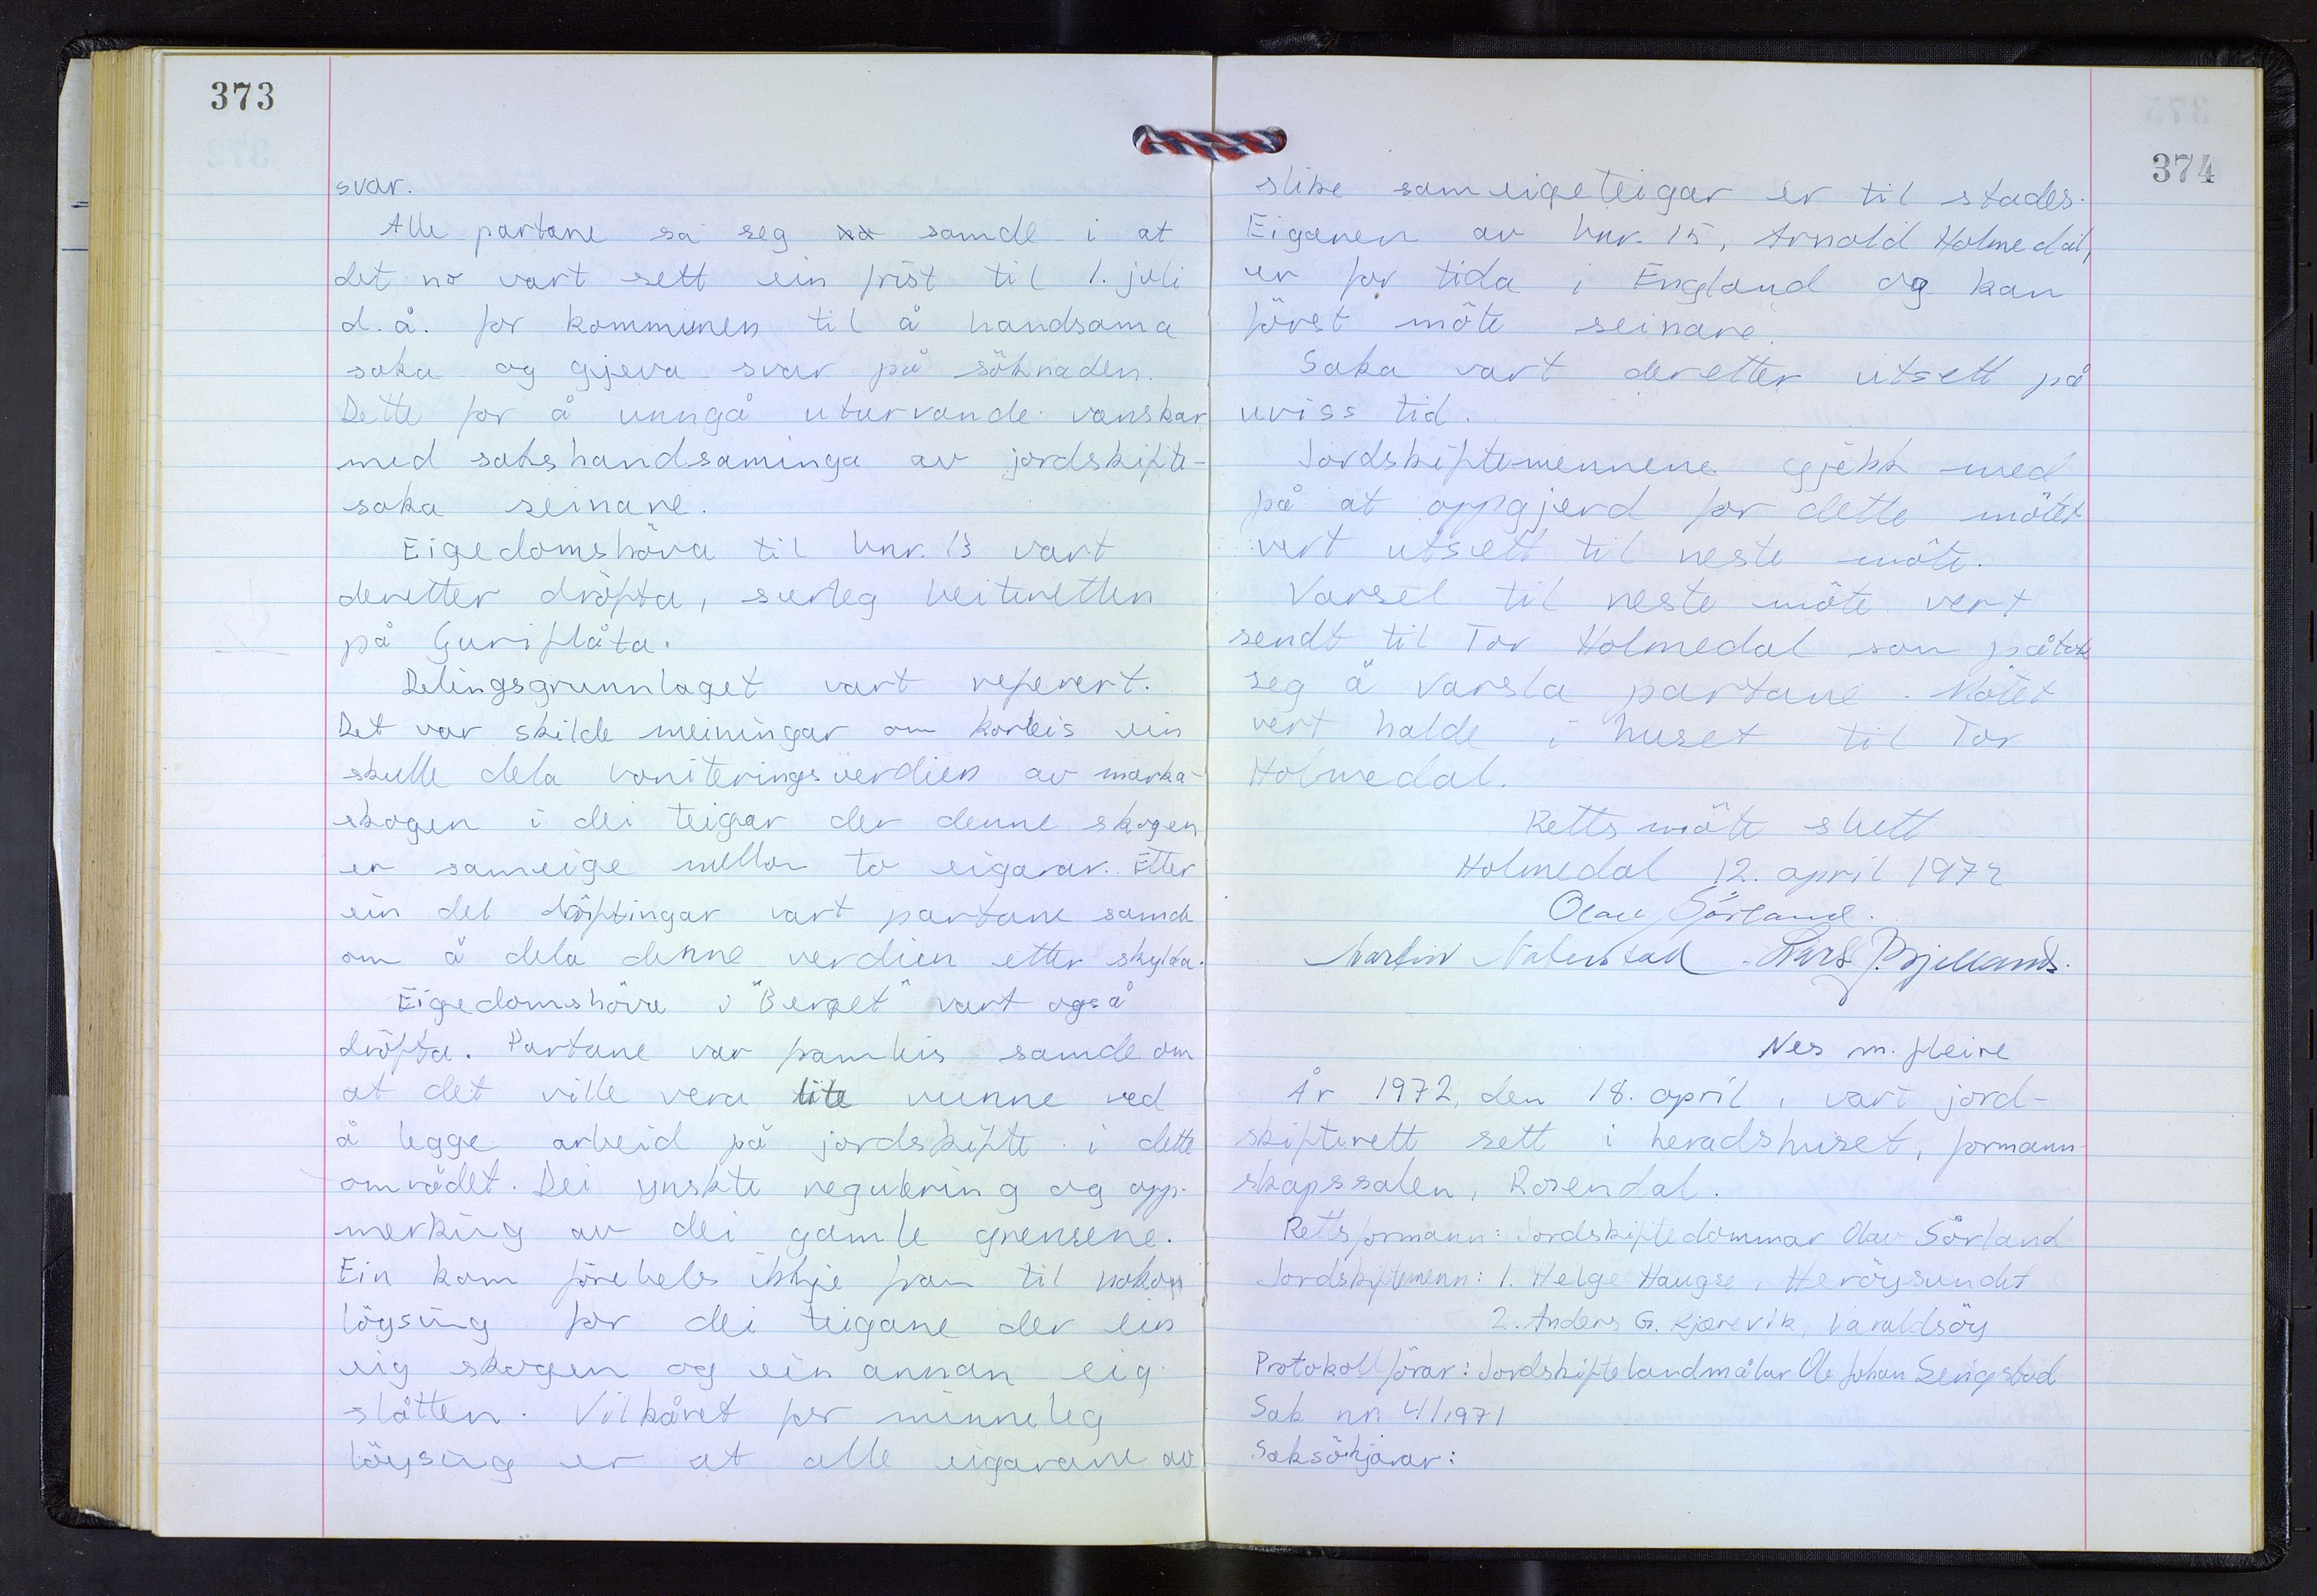 373
svar.
Alle partane sa seg samde i at
det no vart sett ein frist til 1. juli
d.å. for kommunen til å handsama
saka og gjeva svar på söknaden.
Dette for å unngå uturvande vanskar
med sakshandsaminga av jordskifte-
saka seinare.
Eigedomshöva til bnr. 13 vart
deretter dröfta, serleg beiteretten
på Guriflåta.
Delingsgrunnlaget vart referert.
Det var skilde meiningar om korleis ein
skulle dela boniteringsverdien av marka-
skogen i dei teigar der denne skogen
er sameige mellom to eigarar. Etter
ein del dröftingar vart partane samde
om å dela denne verdien etter skylda.
Eigedomshöva i "Berget" vart også
dröfta. Partane var framleis samde om
at det ville vera lite vunne ved
å legge arbeid på jordskifte i dette
området. Dei ynskte regulering og opp-
merking av dei gamle grensene.
Ein kom förebels ikkje fram til nokon
löysing for dei teigane der ein
eig skogen og ein annan eig
slåtten. Vilkåret for minneleg
löysing er at alle eigarane av
374
slike sameigeteigar er til stades.
Eigaren av bnr. 15, Arnold Holmedal,
er for tida i England og kan
först möte seinare.
Saka vart deretter utsett på
uviss tid.
Jordskiftemennene gjekk med
på at oppgjerd for dette mötet
vert utsett til neste möte.
Varsel til neste möte vert
sendt til Tor Holmedal som påtok
seg å varsla partane. Mötet
vert halde i huset til Tor
Holmedal.
Retts möte slutt
Holmedal 12. april 1972
Olav Sörland.
Martin Lars Bjelland.
Nes m. fleire
År 1972, den 18. april, vart jord-
skifterett sett i heradshuset, formann-
skapssalen, Rosendal.
Rettsformann: Jordskiftedommar Olav Sörland
Jordskiftemenn: 1. Helge Haugse, Heröysundet
2. Anders G. Kjærevik, Varaldsöy
Protokollförar: Jordskiftelandmålar Ole Johan Lengstad
Sak nr. 4/1971
Saksökjarar: